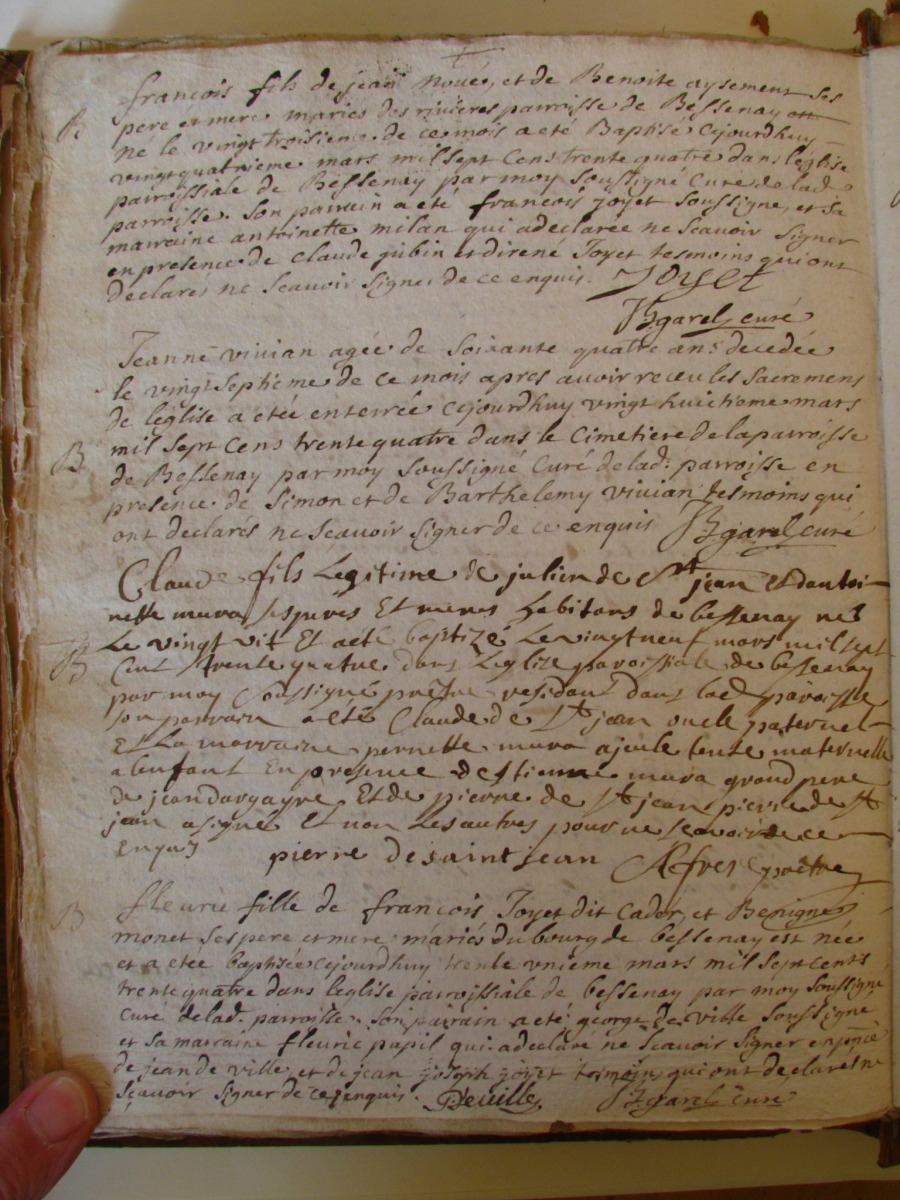 françois fils de jean Noué, et de Benoite aysement ses
B pere et mere mariés des rivieres parroisse de Bessenay
ne le vingt troisieme de ce mois a eté Baptisé cejourdhuy
vingt quatrieme mars mil sept Cens trente quatre dans leglise
parroissiale de Bessenay par moy soussigné Curé de lad.
parroisse. son parrain a eté françois joyet soussigné, et sa
marraine antoinette milan qui a declaree ne scavoir signer
en presence de Claude gubin et di rené Joyet tesmoins qui ont
declares ne scavoir signer de ce enquis. Joyet
garel curé
Jeanne vivian agée de soixante quatre ans decedée
le vingt septieme de ce mois apres avoir receu les sacremens
de leglise a etée enterrée cejourdhuy vingt huictieme mars
mil sept Cens trente quatre dans le Cimetiere de la parroisse
B de Bessenay par moy soussigné Curé de lad. parroisse en
presence de Simon et de Barthelemy vivian tesmoins qui
ont declarés ne scavoir signer de ce enquis garel curé
Claude fils Legitime de julien de St jean Et dantoi-
nette mura ses peres Et meres habitans de bessenay ne
Le vingt vit Et a eté baptizé Le vingt neuf mars mil sept
B Cent trente quatre dans Leglise paroissiale de bessenay
par moy soussigné prêtre residant dans lad paroisse
son parrain a eté Claude de St jean oncle paternel
Et La marraine pernette mura ajeule tente maternelle
a lenfant En presence destienne mura grand pere
de jean dargayre Et de pierre de St jean pierre de St
jean a signé Et non Les autres pour ne scavoir de ce
Enquis pierre de saint jean prêtre
B fleurie fille de françois Joyet dit Cador, et Benigne
monet ses pere et mere mariés du bourg de bessenay est née
et a etée baptisée cejourdhuy trente unieme mars mil sept cents
trente quatre dans leglise parroissiale de bessenay par moy soussigné
Curé de lad. parroisse. son parrain a eté george de ville soussigné
et sa marraine fleurie papil qui a declaré ne scavoir signer en pnce
de jean de ville, et de jean joseph joyet tesmoins qui ont declarés ne
scavoir signer de ce enquis. Deville garel curé